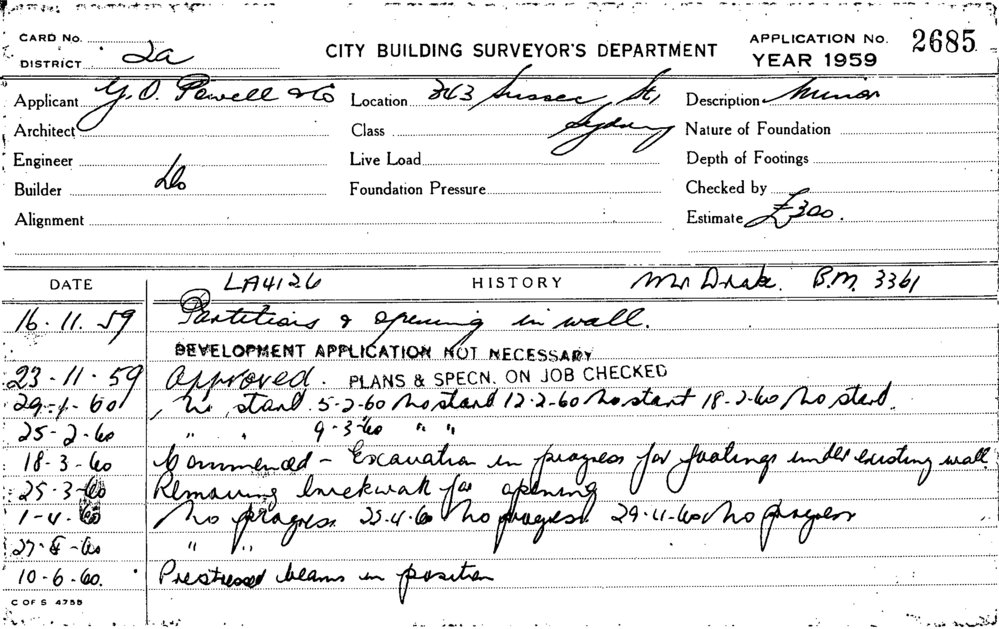 CARD No.
DISTRICT 2a
CITY BUILDING SURVEYOR'S DEPARTMENT
APPLICATION No. 2685
YEAR 1959
Applicant Y.O. Powell & Co Location 263 Sussex St, Description Minor
Architect Class Sydney Nature of Foundation
Engineer Live Load Depth of Footings
Builder Do Foundation Pressure Checked by
Alignment Estimate £300.
DATE LA4126 HISTORY Mr Drake. B.M. 3361
16.11.59 Partitions & opening in wall.
DEVELOPMENT APPLICATION NOT NECESSARY
23.11.59 Approved. PLANS & SPECN. ON JOB CHECKED
29-1-60 No start. 5-2-60 No start 12-2-60 No start 18-2-60 No start.
25-2-60 " " 9-3-60 " "
18-3-60 Commenced - Excavation in progress for footings under existing wall
25-3-60 Removing brickwork for opening
1-4-60 No progress 25-4-60 No progress 29-4-60 No progress
27-5-60 " "
10-6-60. Prestressed beams in position
C OF S 4755